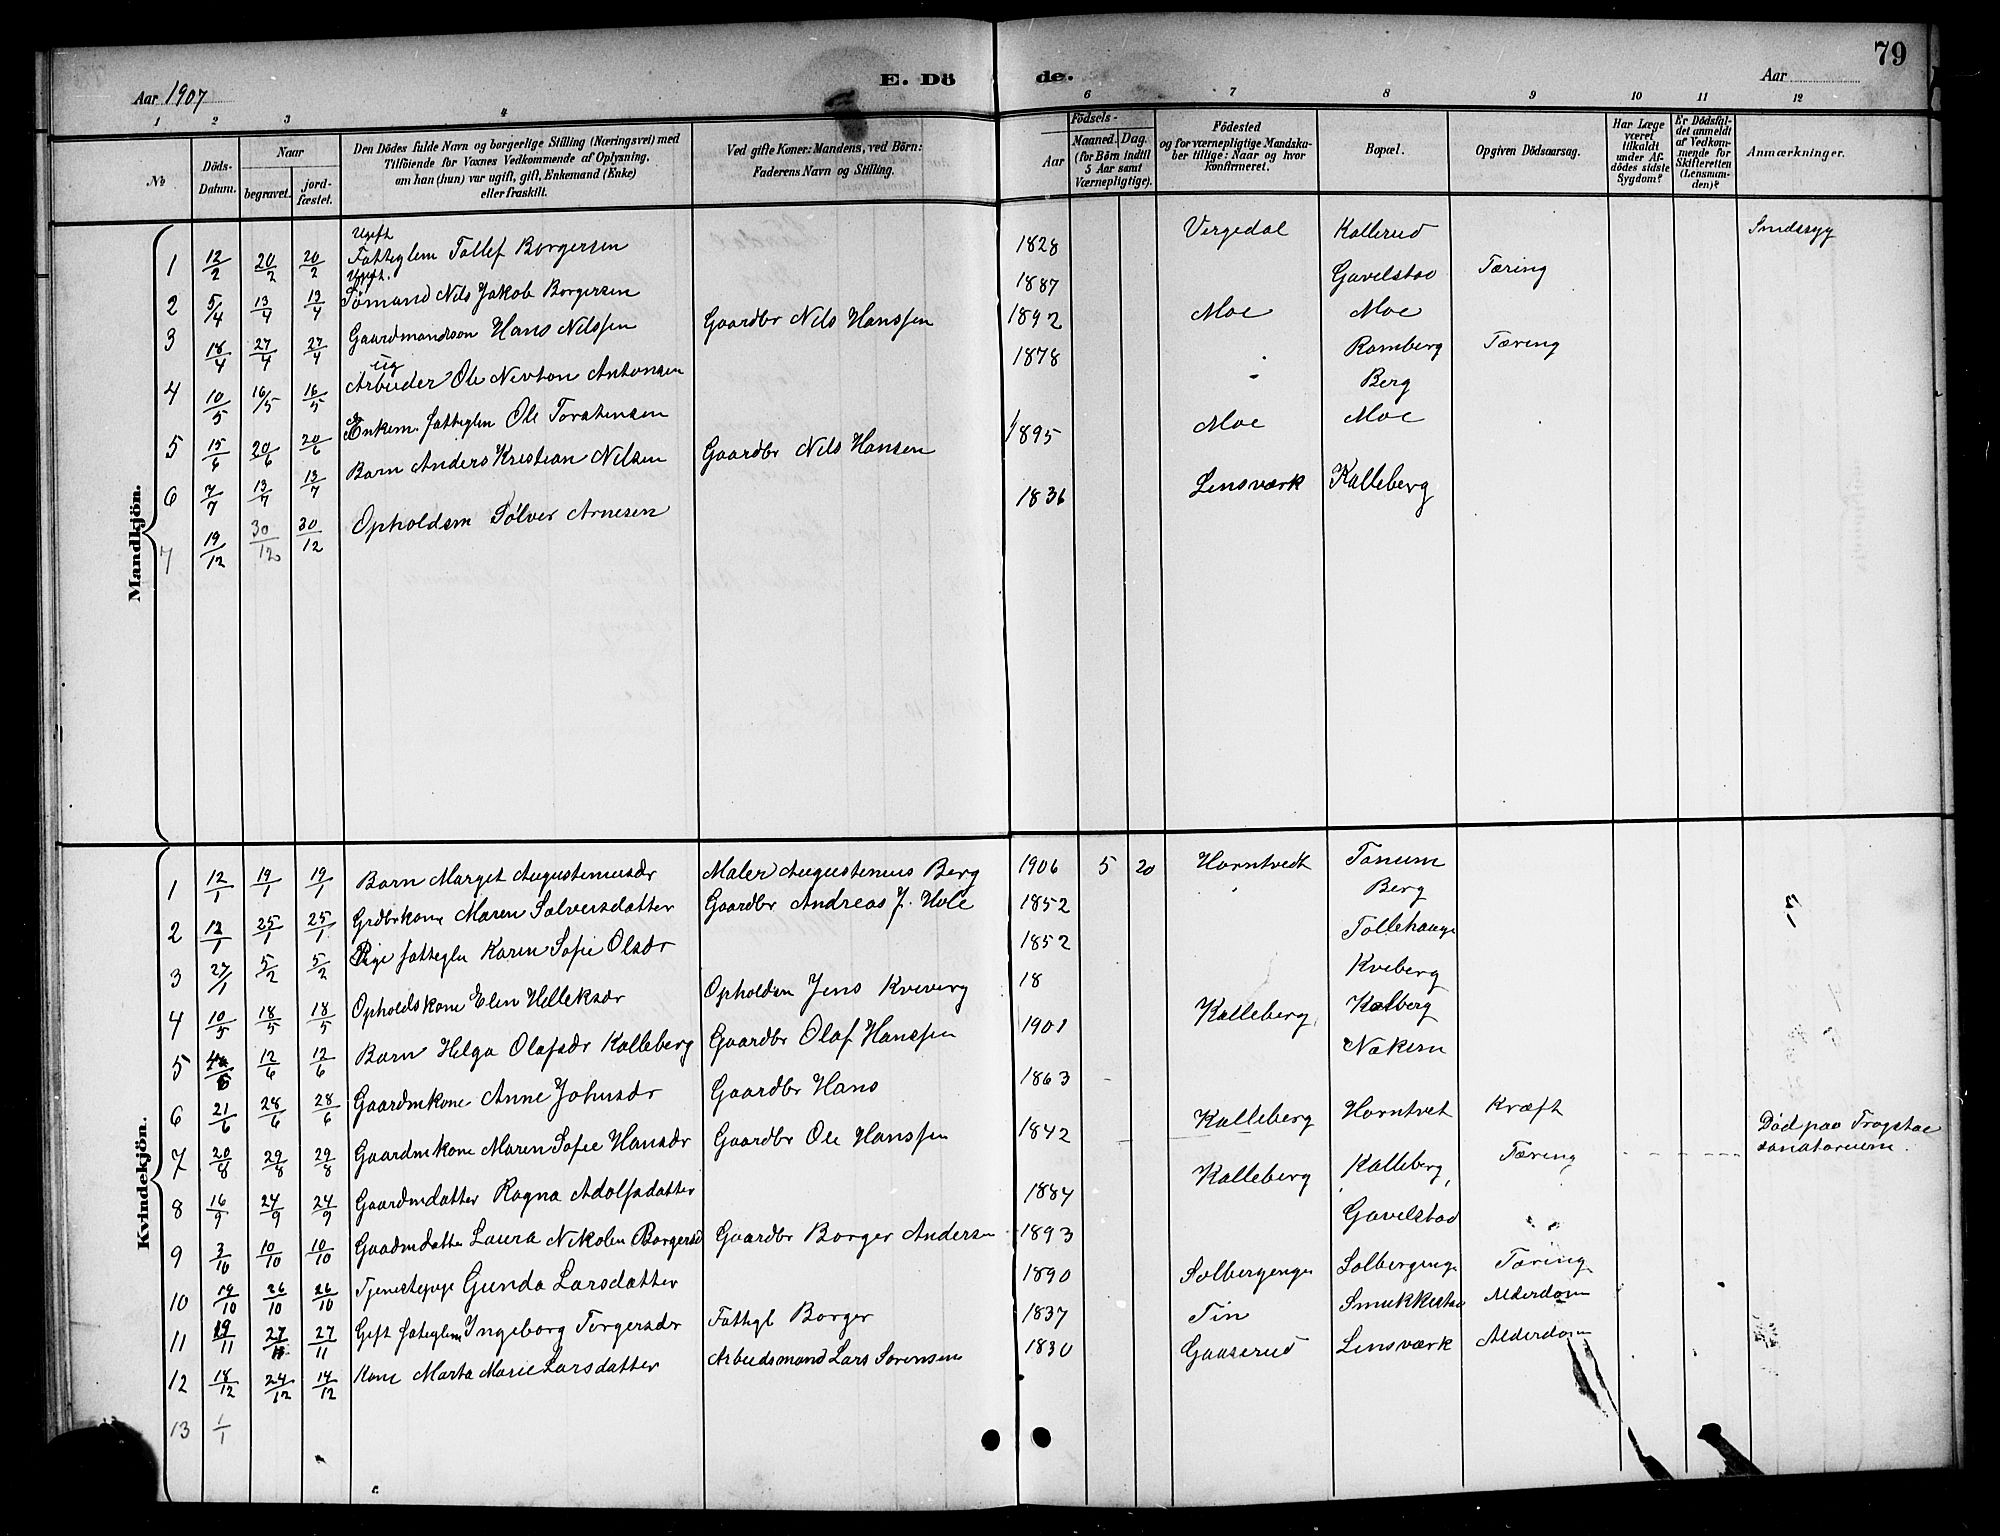 79
E. Dö de.
Aar 1907
Aar
1 2 3 4 6 7 8 9 10 11 12
No
Döds-Datum.
Naar
begravet. jordfæstet.
Den Dödes fulde Navn og borgerlige Stilling (Næringsvei) med
Tilföiende for Voxnes Vedkommende af Oplysning,
om han (hun) var ugift, gift, Enkemand (Enke)
eller fraskilt.
Ved gifte Koner: Mandens, ved Börn:
Faderens Navn og Stilling.
Födsels-
Aar
Maaned. Dag.
(for Börn indtil
5 Aar samt
Værnepligtige).
Födested
og for værnepligtige Mandska-
ber tillige: Naar og hvor
konfirmeret.
Bopæl.
Opgiven Dödsaarsag.
Har Læge
været
tilkaldt
under Af-
dödes sidste
Sygdom?
Er Dödsfal-
det anmeldt
af Vedkom-
mende for
Skifteretten
(Lensman-
den)?
Anmærkninger.
Mandkjön.
Ugift
1 12/2 20/2 20/2 Fatteglem Tollef Borgersen 1828 Vergedal Kallerud Sindssyg
Ugift.
2 5/4 13/4 13/4 Sømand Nils Jakob Borgersen 1887 Gavelstad Tæring
3 18/4 27/4 27/4 Gaardmandssøn Hans Nilssen Gaardbr Nils Hanssen 1892 Moe Moe
ug
4 10/5 16/5 16/5 Arbeider Ole Nevton Antonsen 1878 Ramberg Tæring
5 15/6 20/6 20/6 Enkem. fatteglem Ole Torstensen Berg
6 7/7 13/7 13/7 Barn Anders Kristian Nilsen Gaardbr Nils Hansen 1895 Moe Moe
7 19/12 30/12 30/12 Opholdsm Sølver Arnesen 1836 Lensværk Kalleberg
Kvindekjön.
1 12/1 19/1 19/1 Barn Marget Augusteniusdr Maler Augustenius Berg 1906 5 20 Horntvedt Tanum
2 13/1 25/1 25/1 Grdbrkone Maren Sølversdatter Gaardbr Andreas J. Hole 1852 Berg
3 27/1 5/2 5/2 Pige fatteglem Karen Sofie Olsdr 1852 Tollehaug
4 10/5 18/5 18/5 Opholdskone Elen Helleksdr Opholdsm Jens Kveverg 18 Kveberg
5 12/6 12/6 Barn Helga Olafsdr Kalleberg Gaardbr Olaf Hanssen 1901 Kalleberg Kalberg
6 21/6 28/6 28/6 Gaardmkone Anne Johnsdr Gaardbr Hans 1863 Nøkern
7 20/8 29/8 29/8 Gaardmkone Maren Sofie Hansdr Gaardbr Ole Hanssen 1842 Kalleberg Horntvet Kræft
8 16/9 24/9 24/9 Gaardmdatter Ragna Adolfsdatter 1884 Kalleberg Kalleberg Tæring Død paa Trogstad
sanatorium.
9 3/10 10/10 10/10 Gaardmdatter Laura Nikolin Borgersd Gaardbr Borger Andersen 1893 Gavelstad
10 19/10 26/10 26/10 Tjenestepige Gunda Larsdatter 1890 Solbergenge Solbergenge Tæring
11 19/11 27/11 27/11 Gift fatteglem Ingeborg Torgersdr Fattigl Borger 1837 Tin Smukkestad Alderdom
12 18/12 24/12 14/12 Kone Marta Marie Larsdatter Arbeidsmand Lars Sørensen 1830 Gaaserud Lensværk Alderdom
13 1/1